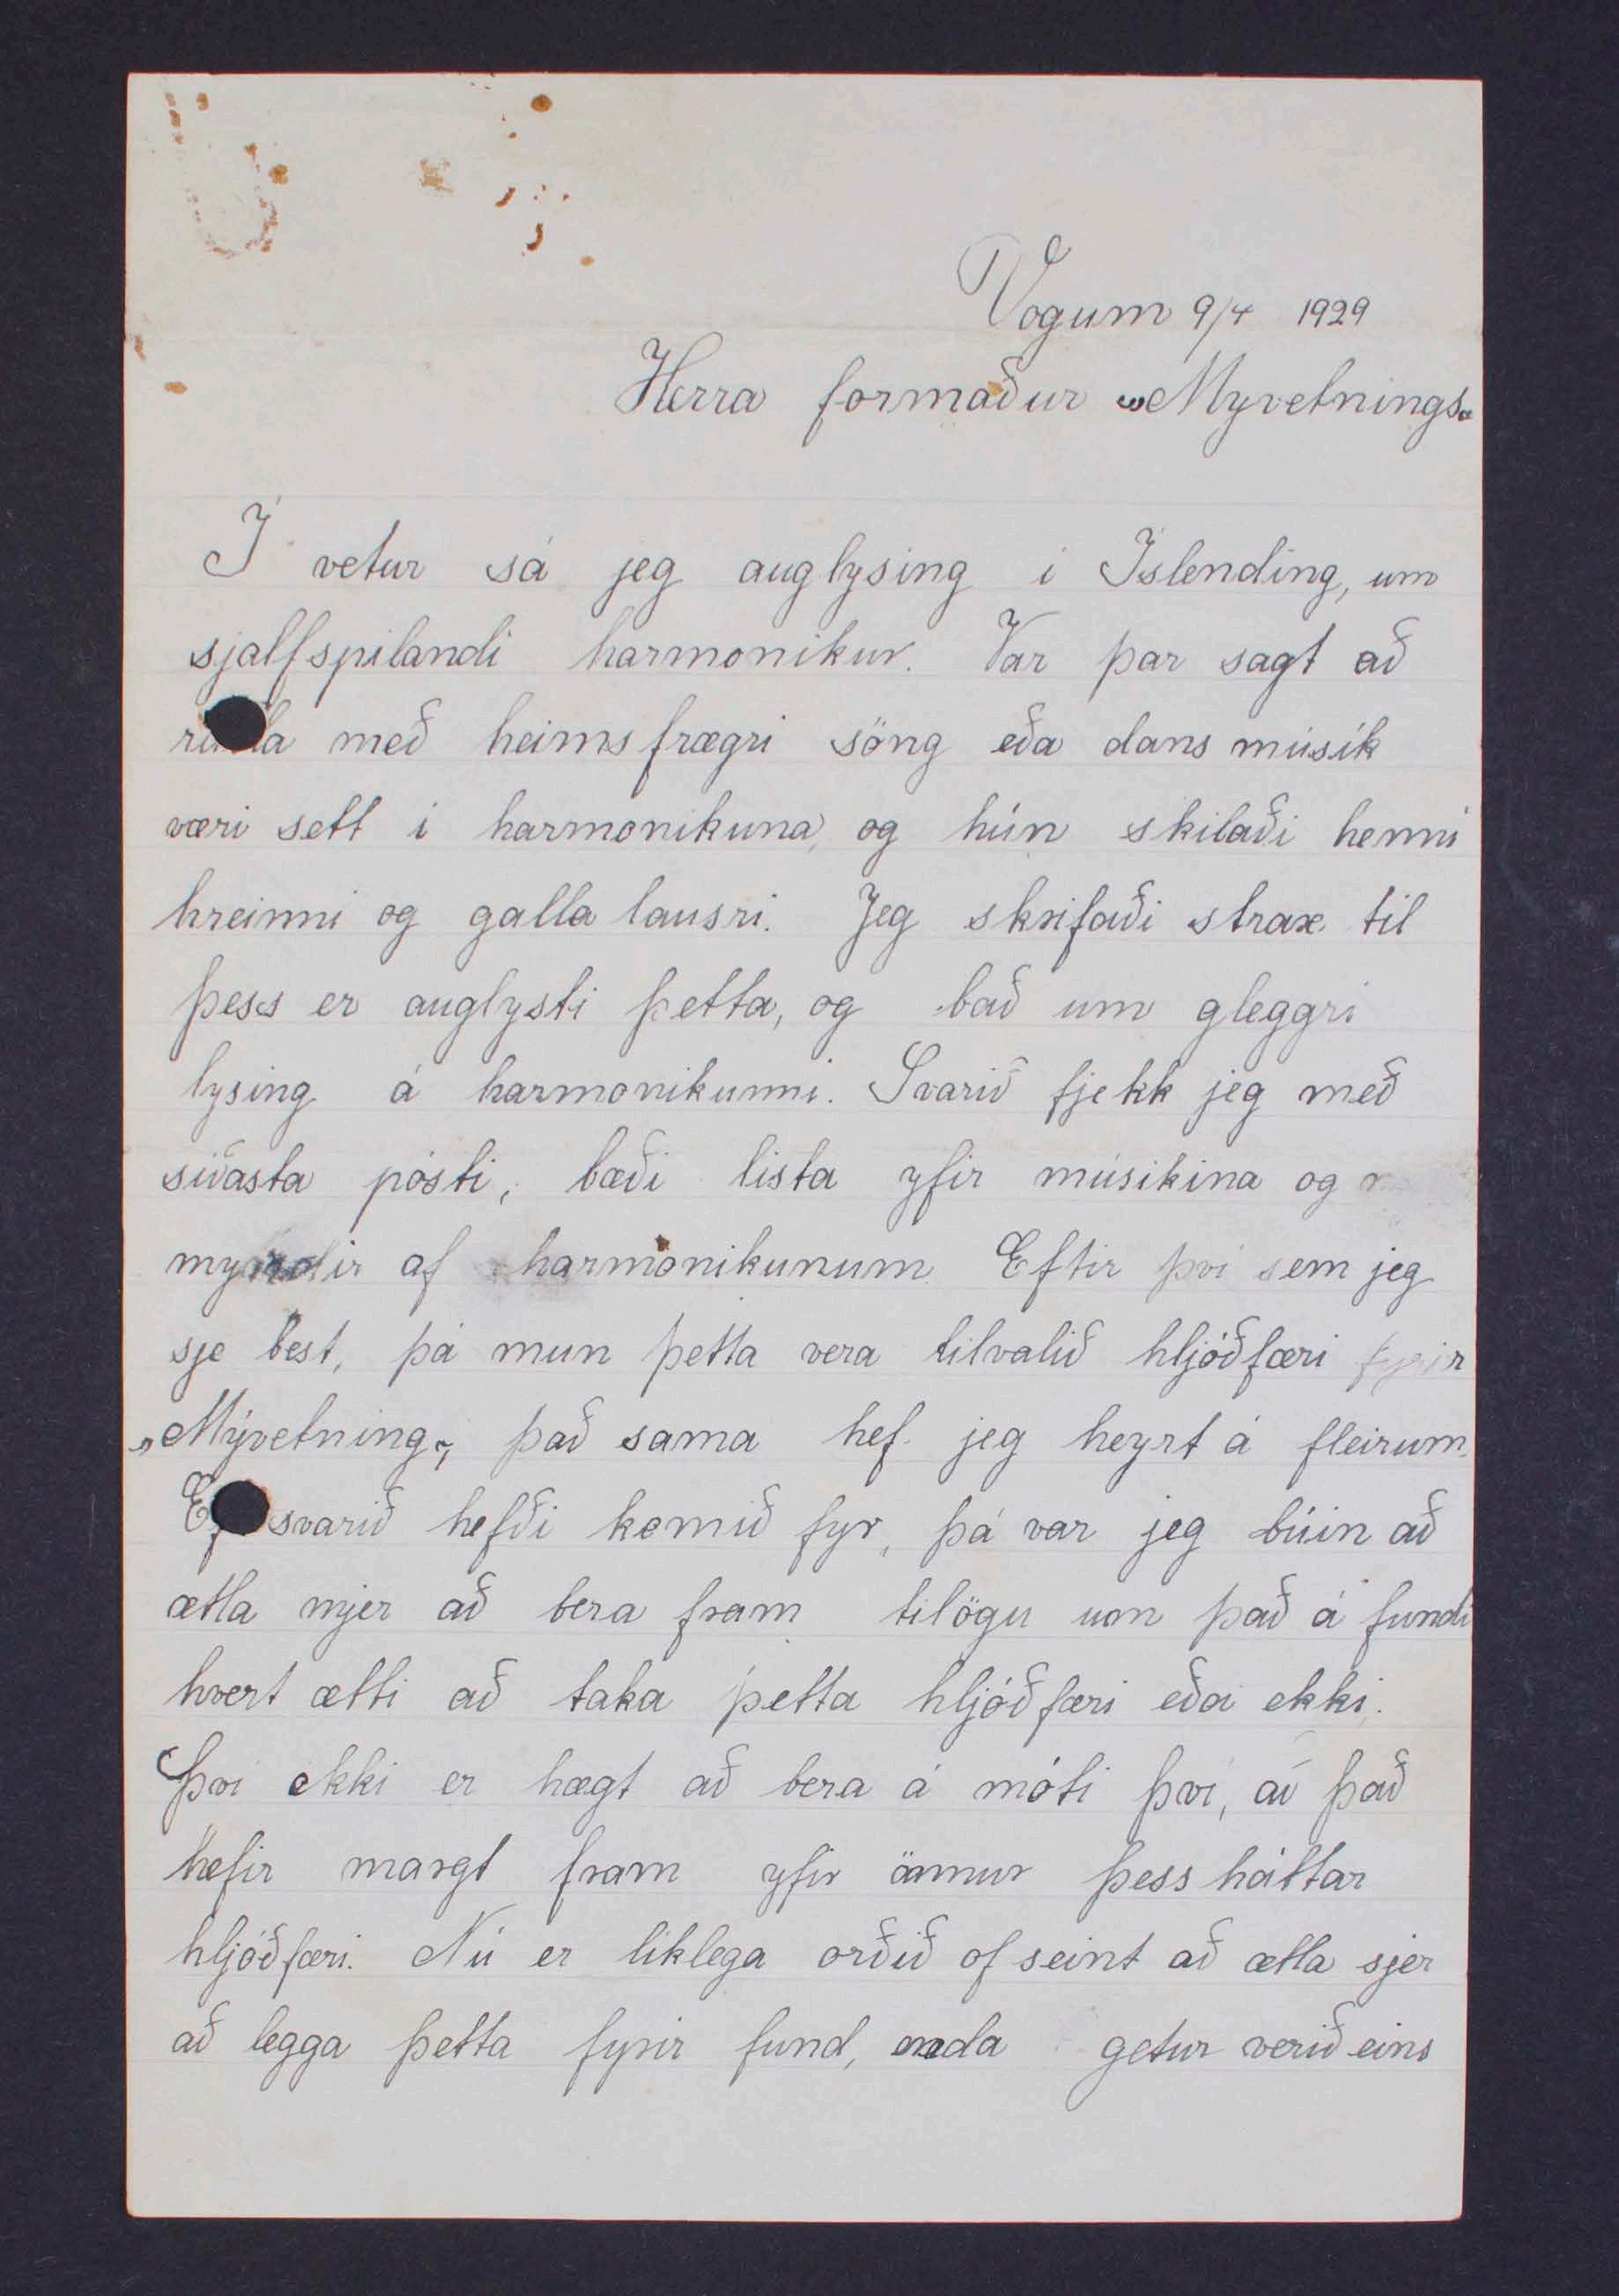 Vogum 9/4 1929
Herra formaður „Myvetnings"
Í vetur sá jeg auglysing i Íslending, um
sjalfspilandi harmonikur. Var þar sagt að
með heimsfrægri söng eða dans músík
væri sett i harmonikuna, og hún skilaði henni
hreinni og galla lausri. Jeg skrifaði strax til
þess er auglysti þetta, og bað um gleggri
lysing á harmonikunni. Svarið fjekk jeg með
siðasta pósti, bæði lista yfir músikina og
myndir af harmonikunum. Eftir þvi sem jeg
sje best, þá mun þetta vera tilvalið hljóðfæri fyrir
„Mývetning", það sama hef jeg heyrt á fleirum.
Ef svarið hefði komið fyr, þá var jeg búin að
ætla mjer að bera fram tilögu um það á fundi
hvert ætti að taka þetta hljóðfæri eða ekki.
Þvi ekki er hægt að bera á móti þvi, að það
hefir margt fram yfir önnur þessháttar
hljóðfæri. Nú er liklega orðið of seint að ætla sjer
að legga þetta fyrir fund, enda getur verið eins